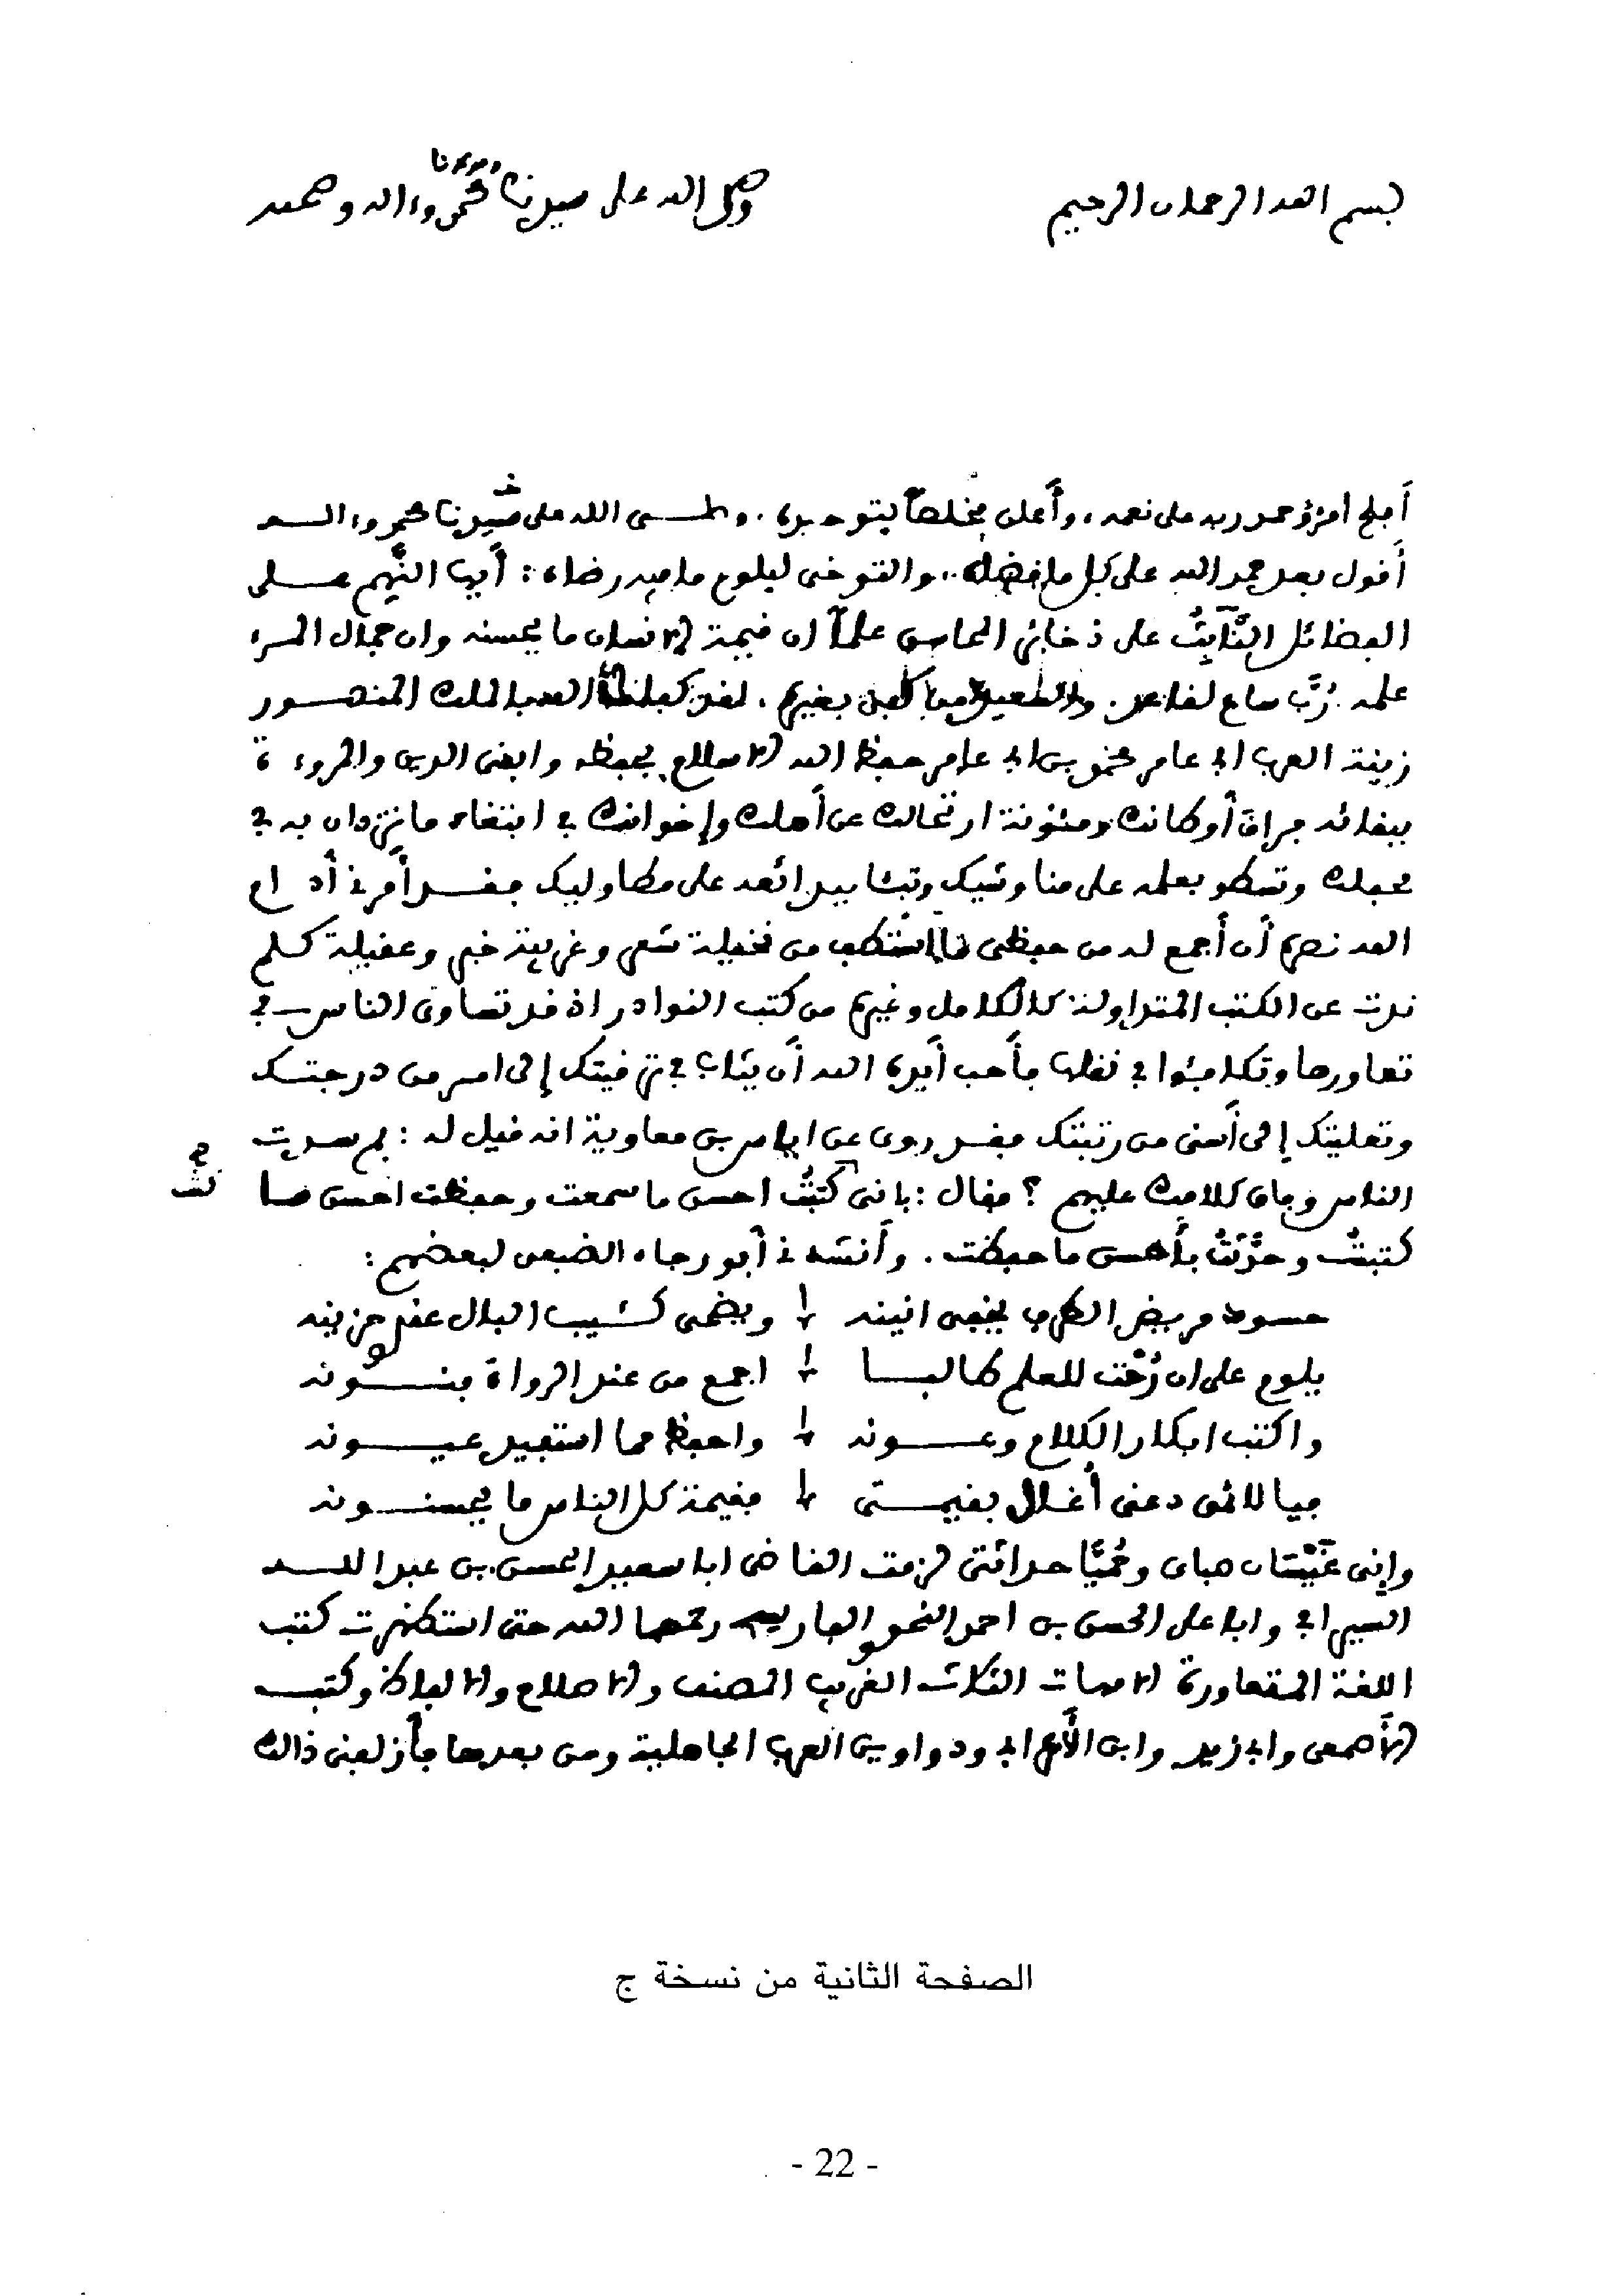 بسم الله الرحمان الرحيم
وصلى الله على سيدنا ومولانا محمد وءاله وصحبه
أفلح امرؤ حمد ربه على نعمه، وأعلن مخلصاً بتوحيده. وصلى الله على سيدنا محمد وءاله
أقول بعد حمد الله على كل ما فضله.. والتوخى لبلوغ ما فيه رضاه: أيها النَّهِم على
الفضائل على ذخائر المحاسن علماً ان قيمة الانسان ما يحسنه وان جمال المرء
علمه رُبَّ ساع لقاعد. لغيره. لقد المنصور
زينة العرب ابى عامر محمد بن ابى عامر حفظ الله الاسلام بحفظه وابقى الدين والمروءة
ببقائه جراة أو كانت ومئونة ارتحالك عن أهلك وإخوانك في ابتغاء ما تزدان به في
محفلك وتسطو بعلمه على مناوئيك على مطاوليك فقد أمر أدام
الله نصره أن أجمع له من حفظى من فضيلة شعر وغريبة خبر وعقيلة كلم
ندرت عن الكتب المتداولة كالكامل وغيره من كتب النوادر اذ قد تساوى الناس في
تعاورها وتكافئوا في نقلها فأحب أيده الله أن في ترقيتك إلى اسمى من درجتك
وتعليتك إلى أسنى من رتبتك فقد روى عن اياس بن معاوية انه قيل له: بم سدت
الناس وفاق كلامك عليهم ؟ فقال: بانى كتبتُ احسن ما سمعت وحفظت احسن ما
كتبتُ وحدَّثتُ بأحسن ما حفظت. وأنشدنى أبو رجاء الضبعى لبعضهم:
حسود مريض القلب يخفى انينه ويضحى كئيب البال عندى حزينه
يلوم على ان رُحْت للعلم طالبا اجمع من عند الرواة فنونه
واكتب ابكار الكلام وعونه واحفظ مما استفيد عيونه
فيا لائمى دعنى أغالى بقيمتى فقيمة كل الناس ما يحسنونه
وإنى صباى وحُميَّا حداثتى لزمت القاضى ابا سعيد الحسن بن عبد الله
السيرافى وابا على الحسن بن احمد النحوى الفارسى رحمهما الله حتى استظهرت كتب
اللغة المتعاورة الامهات الثلاث الغريب المصنف والاصلاح والالفاظ وكتب
الأصمعى وابى زيد وابن الأعرابى ودواوين العرب الجاهلية ومن بعدها فأزلفنى ذالك
الصفحة الثانية من نسخة ج
- 22 -